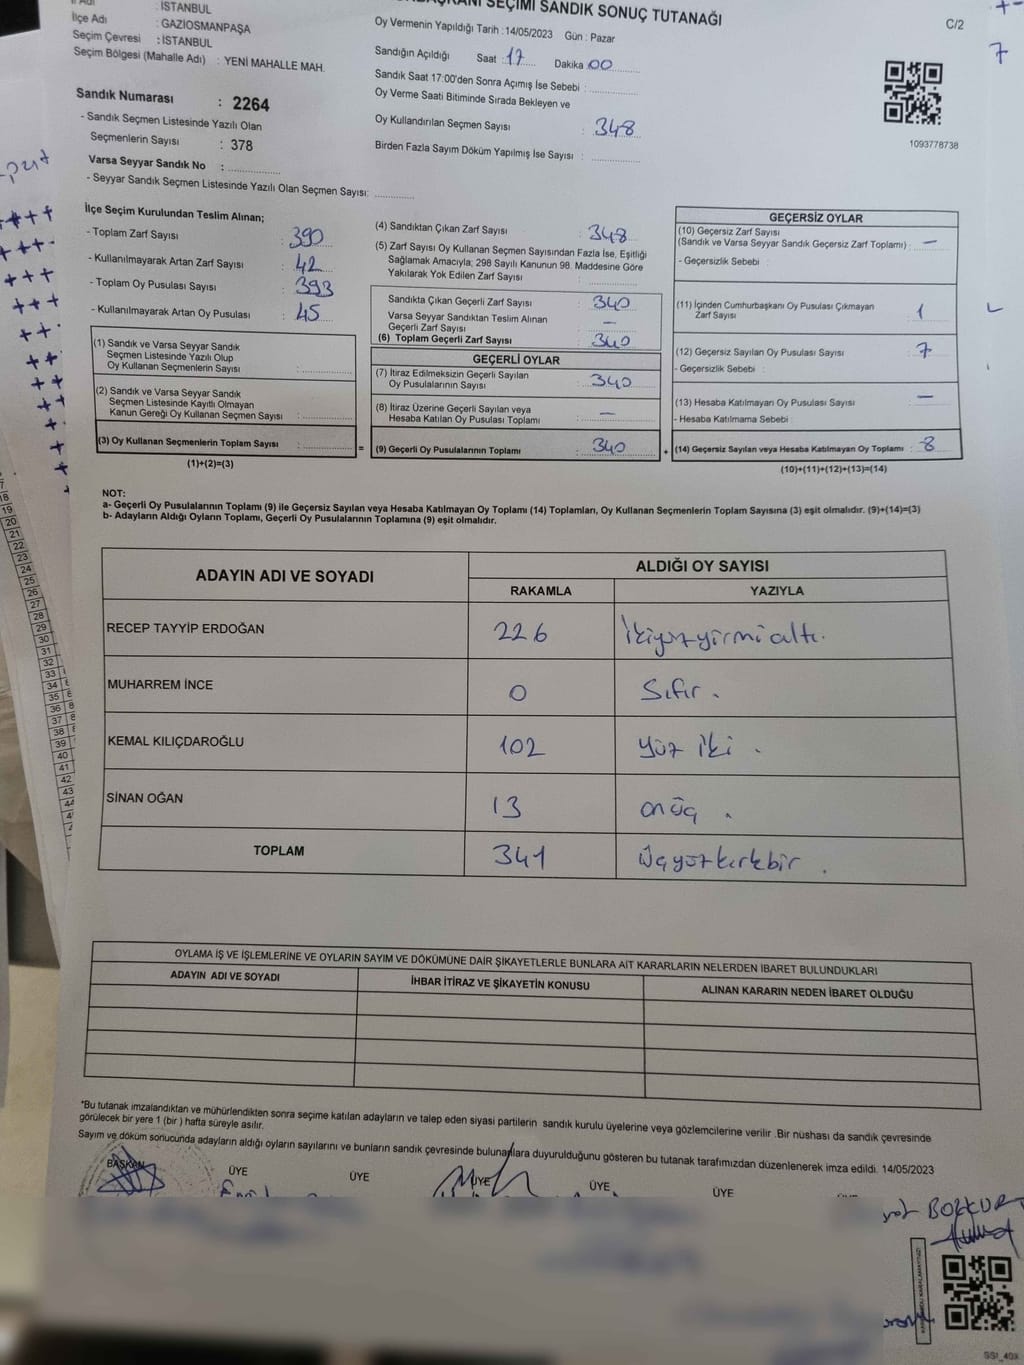 İSTANBUL
İlçe Adı : GAZİOSMANPAŞA
Seçim Çevresi : İSTANBUL
Seçim Bölgesi (Mahalle Adı) : YENİ MAHALLE MAH.
Sandık Numarası : 2264
- Sandık Seçmen Listesinde Yazılı Olan
Seçmenlerin Sayısı : 378
Varsa Seyyar Sandık No :
- Seyyar Sandık Seçmen Listesinde Yazılı Olan Seçmen Sayısı:
SEÇİMİ SANDIK SONUÇ TUTANAĞI
C/2
Oy Vermenin Yapıldığı Tarih :14/05/2023 Gün : Pazar
Sandığın Açıldığı Saat : 17 Dakika : 00
Sandık Saat 17:00'den Sonra Açımış İse Sebebi :
Oy Verme Saati Bitiminde Sırada Bekleyen ve
Oy Kullandırılan Seçmen Sayısı : 348
Birden Fazla Sayım Döküm Yapılmış İse Sayısı :
1093778738
7
İlçe Seçim Kurulundan Teslim Alınan;
- Toplam Zarf Sayısı : 390
- Kullanılmayarak Artan Zarf Sayısı : 42
- Toplam Oy Pusulası Sayısı : 393
- Kullanılmayarak Artan Oy Pusulası : 45
(1) Sandık ve Varsa Seyyar Sandık
Seçmen Listesinde Yazılı Olup
Oy Kullanan Seçmenlerin Sayısı :
(2) Sandık ve Varsa Seyyar Sandık
Seçmen Listesinde Kayıtlı Olmayan
Kanun Gereği Oy Kullanan Seçmen Sayısı :
(3) Oy Kullanan Seçmenlerin Toplam Sayısı : =
(1)+(2)=(3)
(4) Sandıktan Çıkan Zarf Sayısı : 348
(5) Zarf Sayısı Oy Kullanan Seçmen Sayısından Fazla İse, Eşitliği
Sağlamak Amacıyla; 298 Sayılı Kanunun 98. Maddesine Göre
Yakılarak Yok Edilen Zarf Sayısı :
Sandıkta Çıkan Geçerli Zarf Sayısı : 340
Varsa Seyyar Sandıktan Teslim Alınan
Geçerli Zarf Sayısı : —
(6) Toplam Geçerli Zarf Sayısı : 340
GEÇERLİ OYLAR
(7) İtiraz Edilmeksizin Geçerli Sayılan
Oy Pusulalarının Sayısı : 340
(8) İtiraz Üzerine Geçerli Sayılan veya
Hesaba Katılan Oy Pusulası Toplamı : —
(9) Geçerli Oy Pusulalarının Toplamı : 340 +
GEÇERSİZ OYLAR
(10) Geçersiz Zarf Sayısı
(Sandık ve Varsa Seyyar Sandık Geçersiz Zarf Toplamı) : —
- Geçersizlik Sebebi :
(11) İçinden Cumhurbaşkanı Oy Pusulası Çıkmayan
Zarf Sayısı : 1
(12) Geçersiz Sayılan Oy Pusulası Sayısı : 7
- Geçersizlik Sebebi :
(13) Hesaba Katılmayan Oy Pusulası Sayısı : —
- Hesaba Katılmama Sebebi :
(14) Geçersiz Sayılan veya Hesaba Katılmayan Oy Toplamı : 8
(10)+(11)+(12)+(13)=(14)
NOT:
a- Geçerli Oy Pusulalarının Toplamı (9) ile Geçersiz Sayılan veya Hesaba Katılmayan Oy Toplamı (14) Toplamları, Oy Kullanan Seçmenlerin Toplam Sayısına (3) eşit olmalıdır. (9)+(14)=(3)
b- Adayların Aldığı Oyların Toplamı, Geçerli Oy Pusulalarının Toplamına (9) eşit olmalıdır.
ADAYIN ADI VE SOYADI ALDIĞI OY SAYISI
RAKAMLA YAZIYLA
RECEP TAYYİP ERDOĞAN 226 İkiyüzyirmialtı.
MUHARREM İNCE 0 Sıfır.
KEMAL KILIÇDAROĞLU 102 Yüz iki.
SİNAN OĞAN 13 onüç.
TOPLAM 341 Üçyüzkırkbir.
OYLAMA İŞ VE İŞLEMLERİNE VE OYLARIN SAYIM VE DÖKÜMÜNE DAİR ŞİKAYETLERLE BUNLARA AİT KARARLARIN NELERDEN İBARET BULUNDUKLARI
ADAYIN ADI VE SOYADI İHBAR İTİRAZ VE ŞİKAYETİN KONUSU ALINAN KARARIN NEDEN İBARET OLDUĞU
*Bu tutanak imzalandıktan ve mühürlendikten sonra seçime katılan adayların ve talep eden siyasi partilerin sandık kurulu üyelerine veya gözlemcilerine verilir .Bir nüshası da sandık çevresinde
görülecek bir yere 1 (bir ) hafta süreyle asılır.
Sayım ve döküm sonucunda adayların aldığı oyların sayılarını ve bunların sandık çevresinde bulunanlara duyurulduğunu gösteren bu tutanak tarafımızdan düzenlenerek imza edildi. 14/05/2023
BAŞKAN ÜYE ÜYE ÜYE ÜYE ÜYE
BOZKURT